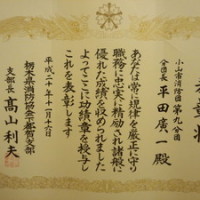 表彰状
小山市消防団 第九分団
分団長 平田廣一殿
あなたは常に規律を厳正に守り
職務に忠実に精励され諸般に
優れた成績を収められました
よってここに功績章を授与し
これを表彰します
平成二十年十一月十六日
栃木県消防協会下都賀支部
支部長 高山利夫